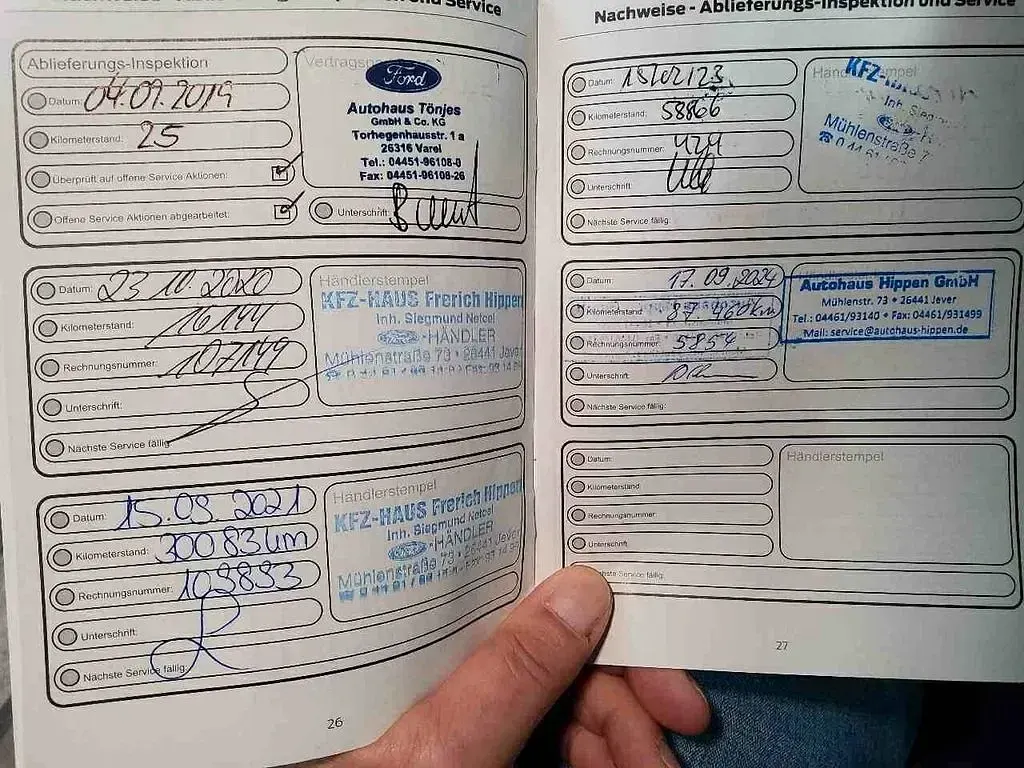 Service
Ablieferungs-Inspektion
Datum: 04.09.2019
Kilometerstand: 25
Überprüft auf offene Service Aktionen:
Offene Service Aktionen abgearbeitet:
Ford
Autohaus Tönjes
GmbH & Co. KG
Torhegenhausstr. 1 a
26316 Varel
Tel.: 04451-96108-0
Fax: 04451-96108-26
Unterschrift:
Datum: 23 10. 2020
Kilometerstand: 16144
Rechnungsnummer: 107149
Unterschrift:
Nächste Service fällig:
Händlerstempel
KFZ-HAUS Frerich Hippen
Inh. Siegmund Netcel
Ford-HÄNDLER
Mühlenstraße 73 • 26441 Jever
Datum: 15.09.2021
Kilometerstand: 30083 km
Rechnungsnummer: 109893
Unterschrift:
Nächste Service fällig:
Händlerstempel
KFZ-HAUS Frerich Hippen
Inh. Siegmund Netcel
Ford-HÄNDLER
Mühlenstraße 73 • 26441 Jever
26
Nachweise - Ablieferungs-Inspektion und Service
Datum:
Kilometerstand: 58866
Rechnungsnummer: 424
Unterschrift:
Nächste Service fällig:
KFZ-
Inh.
Mühlenstraße 7
Datum: 17.09.2024
Kilometerstand: 87 460km
Rechnungsnummer: 5854
Unterschrift:
Nächste Service fällig:
Autohaus Hippen GmbH
Mühlenstr. 73 • 26441 Jever
Tel.: 04461/93140 • Fax: 04461/931499
Mail: service@autohaus-hippen.de
Datum:
Kilometerstand:
Rechnungsnummer:
Unterschrift:
Nächste Service fällig:
Händlerstempel
27